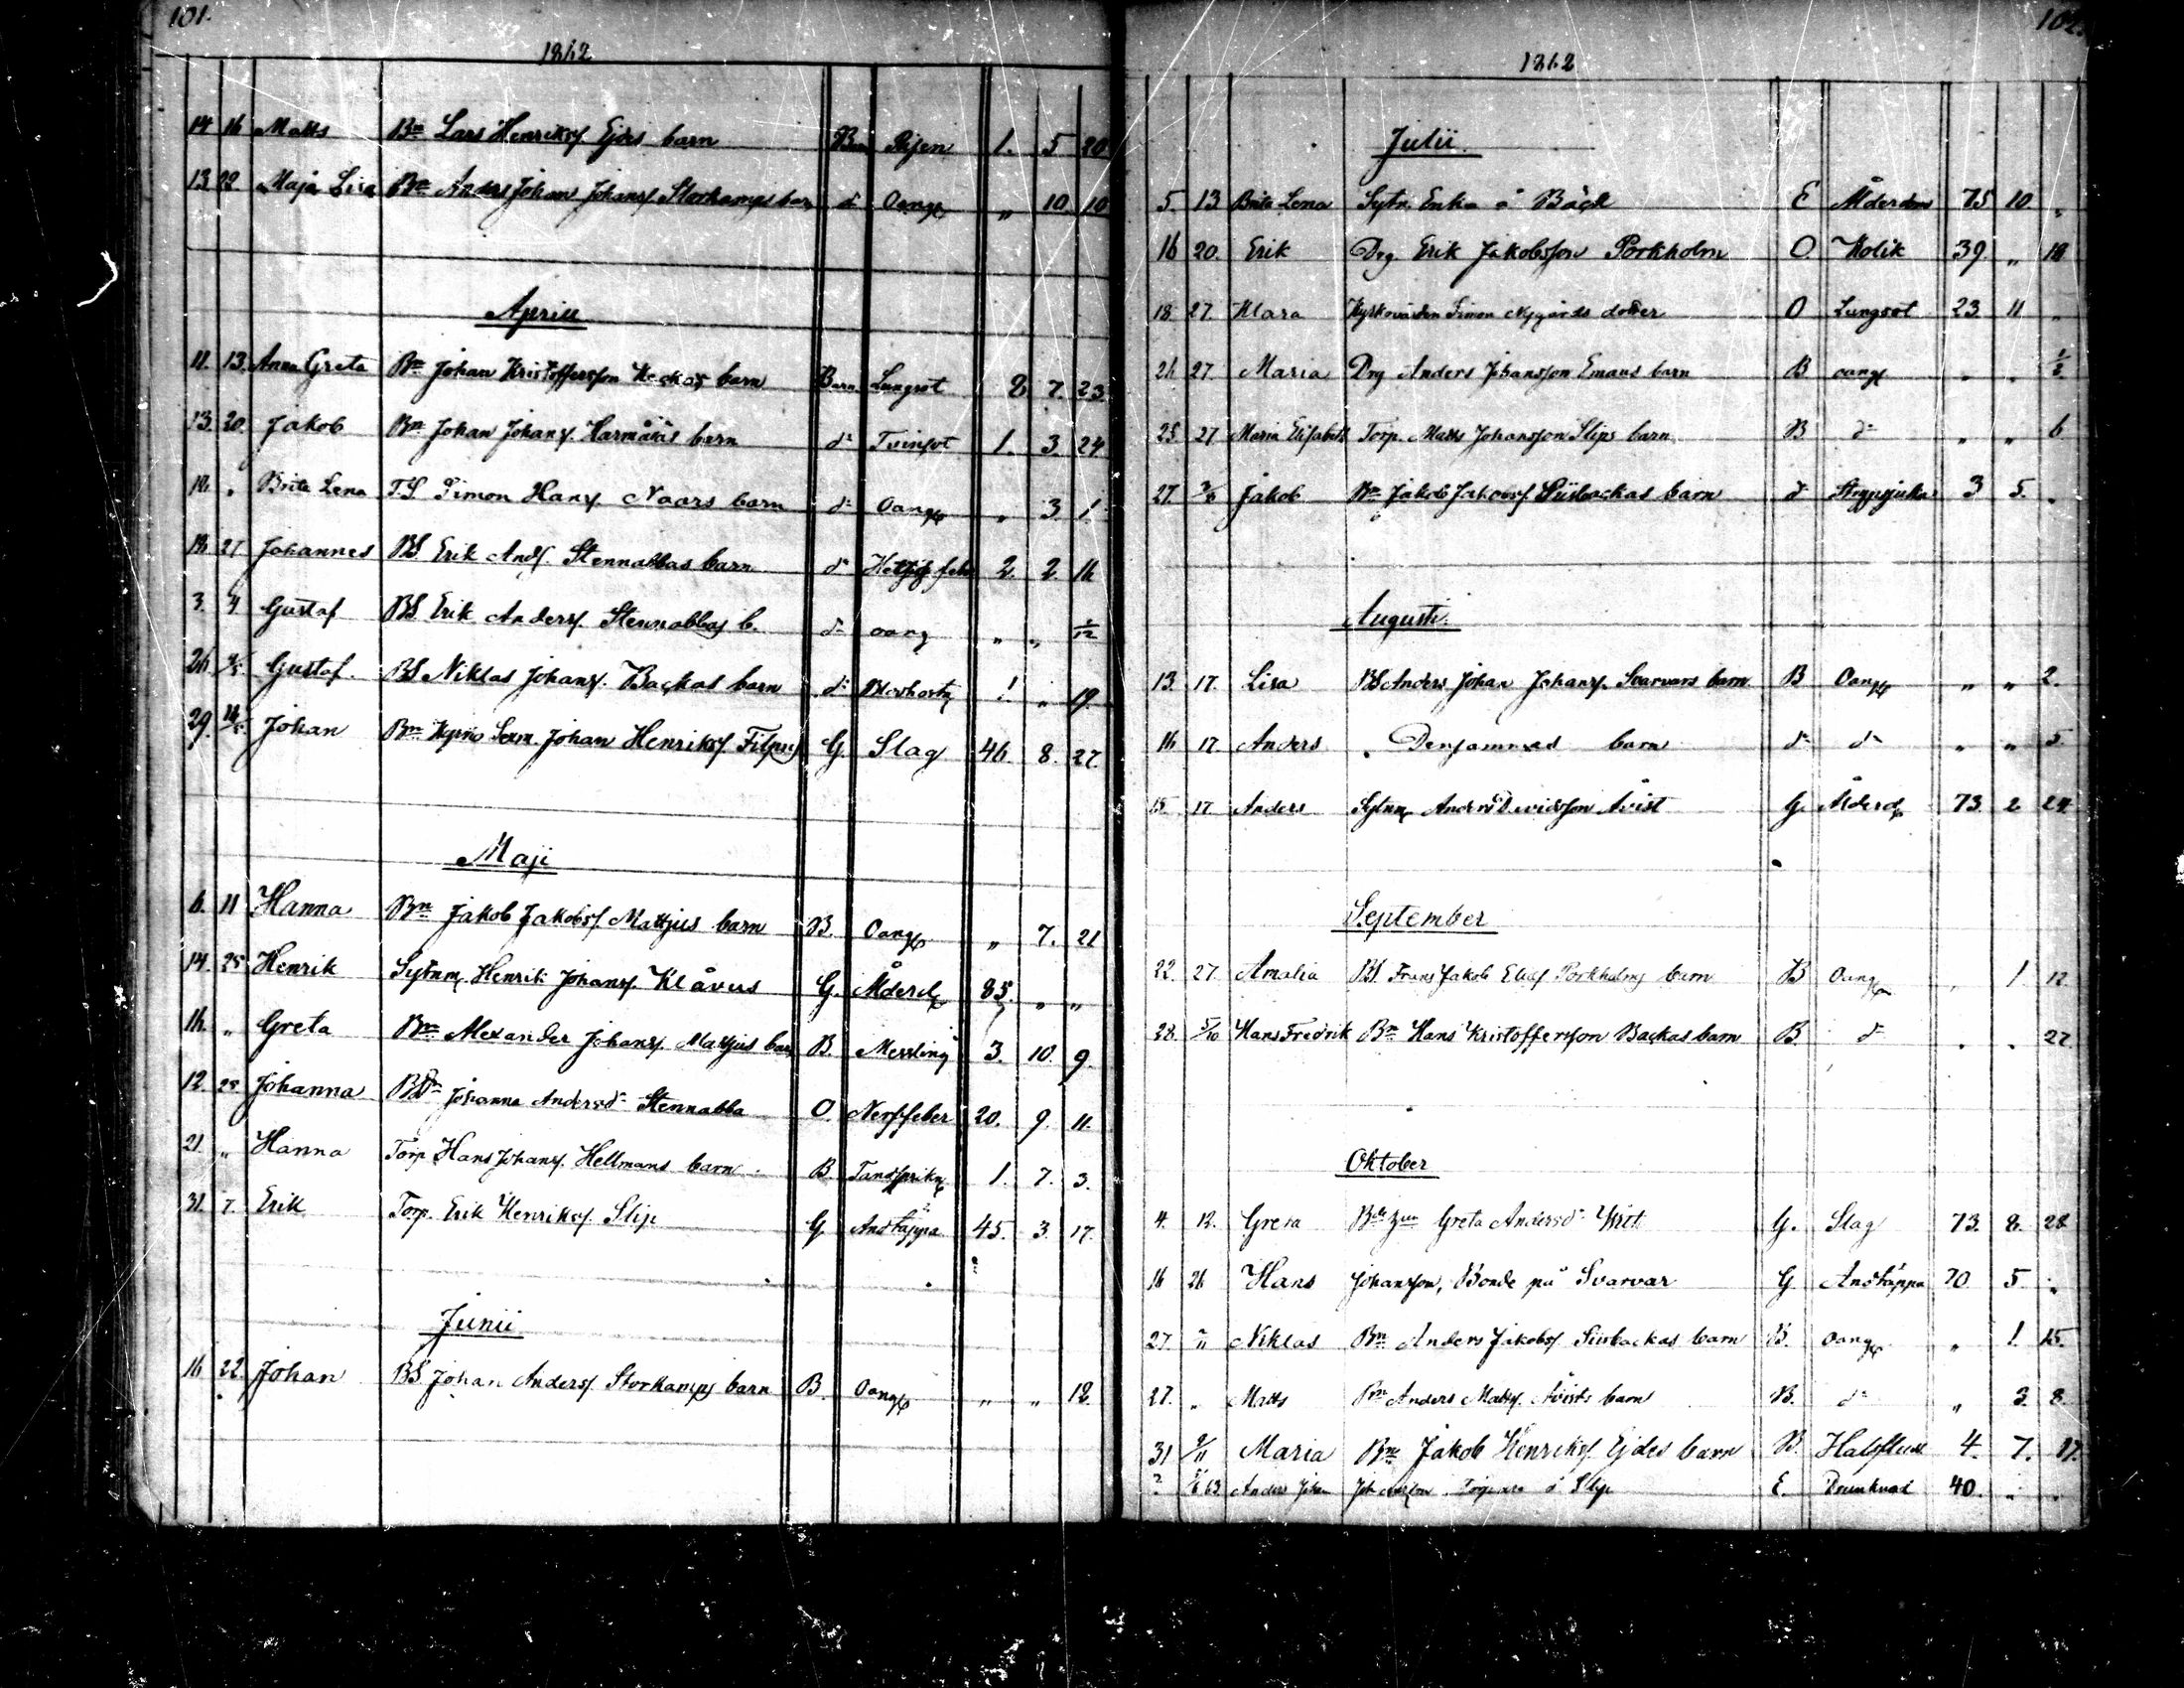 101.
1862
14 16 Matts Bn Lars Henrikss. Ejdes barn Barn 1. 5 20
13 22 Maja Lisa Bn Anders Johan Johanss. Storkamps barn d:o Oang. " 10. 10
Aprill
11. 13. Anna Greta Bn Johan Kristoffersson barn Barn Lungsot 8 7. 23.
13. 20. Jakob Bn Johan Johanss. Harmäläs barn d:o Tvinsot 1. 3. 24.
18. " Brita Lena T.S Simon Hanss. Naars barn d:o Oang. " 3. 1.
18. 27 Johannes BS Erik Ands. Stennabbas barn d:o 2. 2. 16
3. 4 Gustaf BS Erik Anderss. Stennabbas b. d:o oang " " 1/12
26 4/5 Gustaf. BS Niklas Johanss. Backas barn d:o 1. " 19.
29. Johan Bn Johan Henrikss. G. Slag 46. 8. 27.
Maji
6. 11 Hanna Bn Jakob Jakobss. Mattjus barn B. Oang. " 7. 21
14. 25 Henrik Sytnm. Henrik Johanss. Klåvus G. Ålderd. 85. " "
16. " Greta Bn Alexander Johanss. Mattjus barn B. Messling 3. 10. 9.
12. 25 Johanna Johanna Andersd:r Stennabba O. Nerffeber 20. 9. 11.
21. " Hanna Torp. Hans Johanss. Hellmans barn B. 1. 7. 3.
31. 7. Erik Torp. Erik Henrikss. Slip G. Andtäppa 45. 3. 17.
Junii
16 22. Johan BS Johan Anderss. Storkamps barn B. Oang. " " 18.
102.
1862
Julii.
5. 13 Brita Lena Sytn. Enka å Bäck E Ålderdom 75 10. "
16 20. Erik Drg Erik Jakobsson Porkholm O. Kolik 39. " 18
18. 27. Klara Kyrkovärden Simon Nygårds dotter O Lungsot 23. 11 "
26 27. Maria Drg Anders Johansson Emans barn B oang. " " 1/2
25 27 Maria Elisabeth Torp. Matts Johansson Slips barn B d:o " " 6
27. 3/8 Jakob Bn Jakob Jakobss. barn d:o Strypsjuka 3 5. "
Augusti.
13. 17. Lisa BS Anders Johan Johanss. Svarvars barn B Oang. " " 2.
16 17. Anders " barn d:o d:o " " 5.
15. 17. Anders Sytnm. Anders Davidsson Åvist G. Ålderd. 73. 2 24
September
22. 27. Amalia BS Frans Jakob Porkholms barn B Oang. " 1. 12
28. 5/10 Hans Fredrik Bn Hans Kristoffersson Backas barn B. d:o " " 27.
Oktober
4. 12. Greta Greta Andersd:r G. Slag 73. 8. 28
16 26 Hans Johansson, Bonde på Svarvar G. Andtäppa 70. 5 "
27. Niklas Bn Anders Jakobss. barn B. oang. " 1. 15.
27. " Matts Bn Anders Matss. Åvists barn B. d:o " 3. 8.
31 9/11 Maria Bn Jakob Henrikss. Ejdes barn B. Halsfluss 4. 7. 17.
? Anders Johan Johansson Torpare å Slip E. Drunknad 40. " "